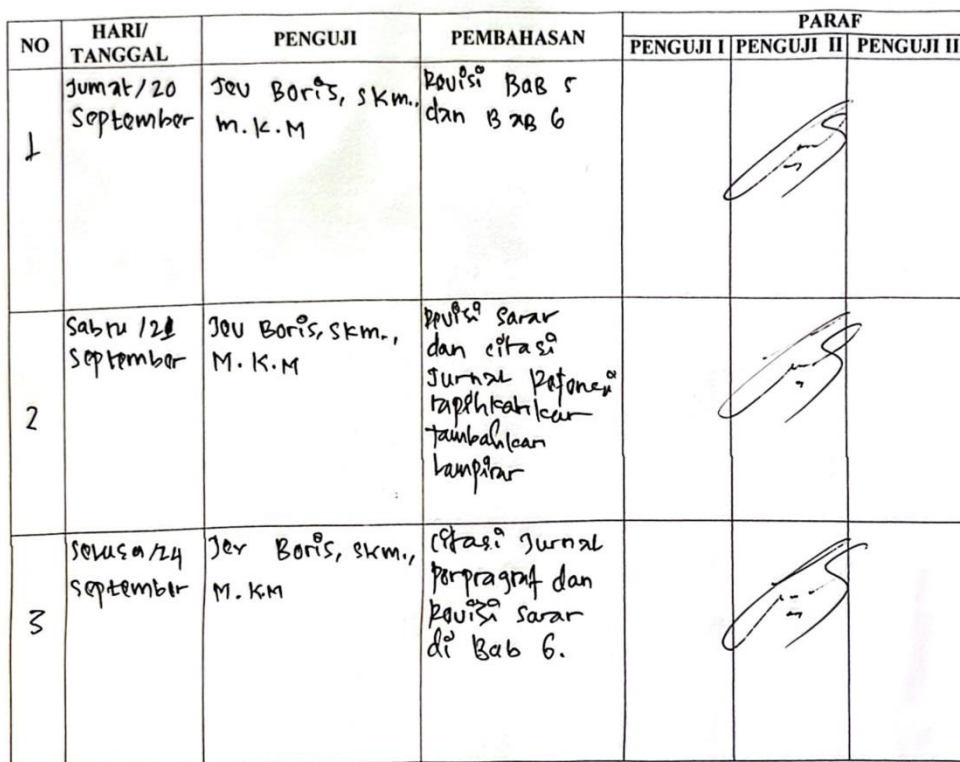 NO HARI/ TANGGAL PENGUJI PEMBAHASAN PARAF
PENGUJI I PENGUJI II PENGUJI II
1
Jumat/20
September
Jeu Boris, SKM.,
M.K.M
Revisi BAB 5
dan BAB 6
2
Sabtu /21
September
Jeu Boris, SKM.,
M.K.M
Revisi Saran
dan citasi
Jurnal
tambahkan
Lampiran
3
Selasa/24
September
Jer Boris, SKM.,
M.KM
Citasi Jurnal
perpragraf dan
Revisi Saran
di Bab 6.